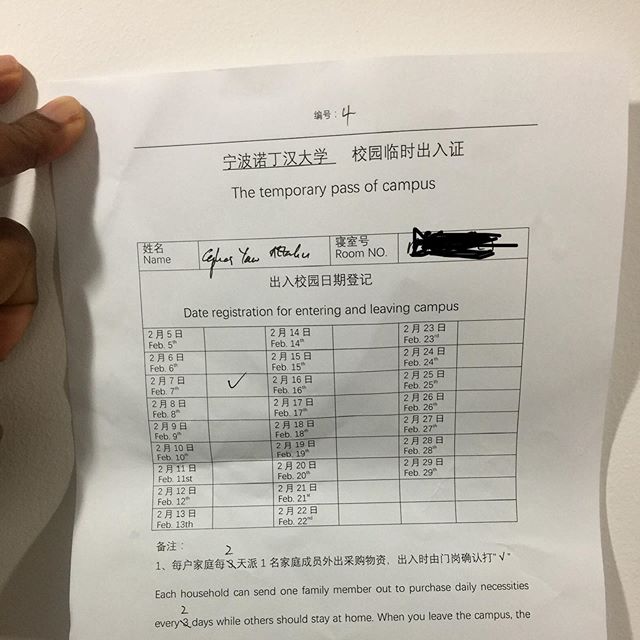 编号：4
宁波诺丁汉大学 校园临时出入证
The temporary pass of campus
姓名
Name
寝室号
Room NO.
出入校园日期登记
Date registration for entering and leaving campus
2月5日
Feb. 5th
2月14日
Feb. 14th
2月23日
Feb. 23rd
2月6日
Feb. 6th
2月15日
Feb. 15th
2月24日
Feb. 24th
2月7日
Feb. 7th
✓
2月16日
Feb. 16th
2月25日
Feb. 25th
2月8日
Feb. 8th
2月17日
Feb. 17th
2月26日
Feb. 26th
2月9日
Feb. 9th
2月18日
Feb. 18th
2月27日
Feb. 27th
2月10日
Feb. 10th
2月19日
Feb. 19th
2月28日
Feb. 28th
2月11日
Feb. 11st
2月20日
Feb. 20th
2月29日
Feb. 29th
2月12日
Feb. 12th
2月21日
Feb. 21st
2月13日
Feb. 13th
2月22日
Feb. 22nd
备注：
1、每户家庭每2天派1名家庭成员外出采购物资，出入时由门岗确认打“√”
Each household can send one family member out to purchase daily necessities
every 2 days while others should stay at home. When you leave the campus, the